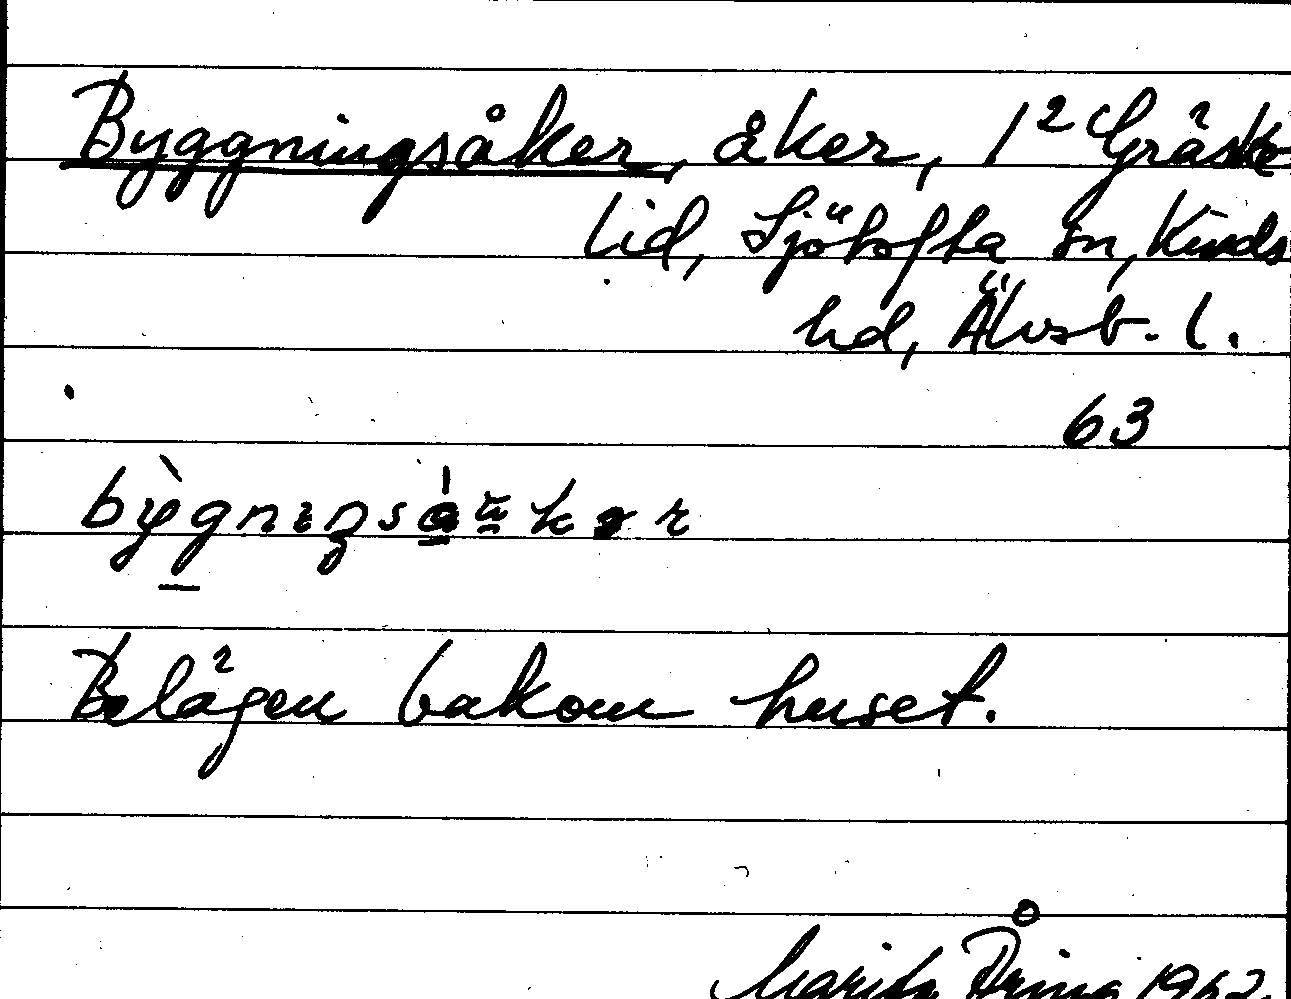 Byggningsåker, åker, 1² Gräske
lid, Sjötofta sn, Kinds
hd, Älvsb. l.
63
Belägen bakom huset.
Marita Åring 1962.